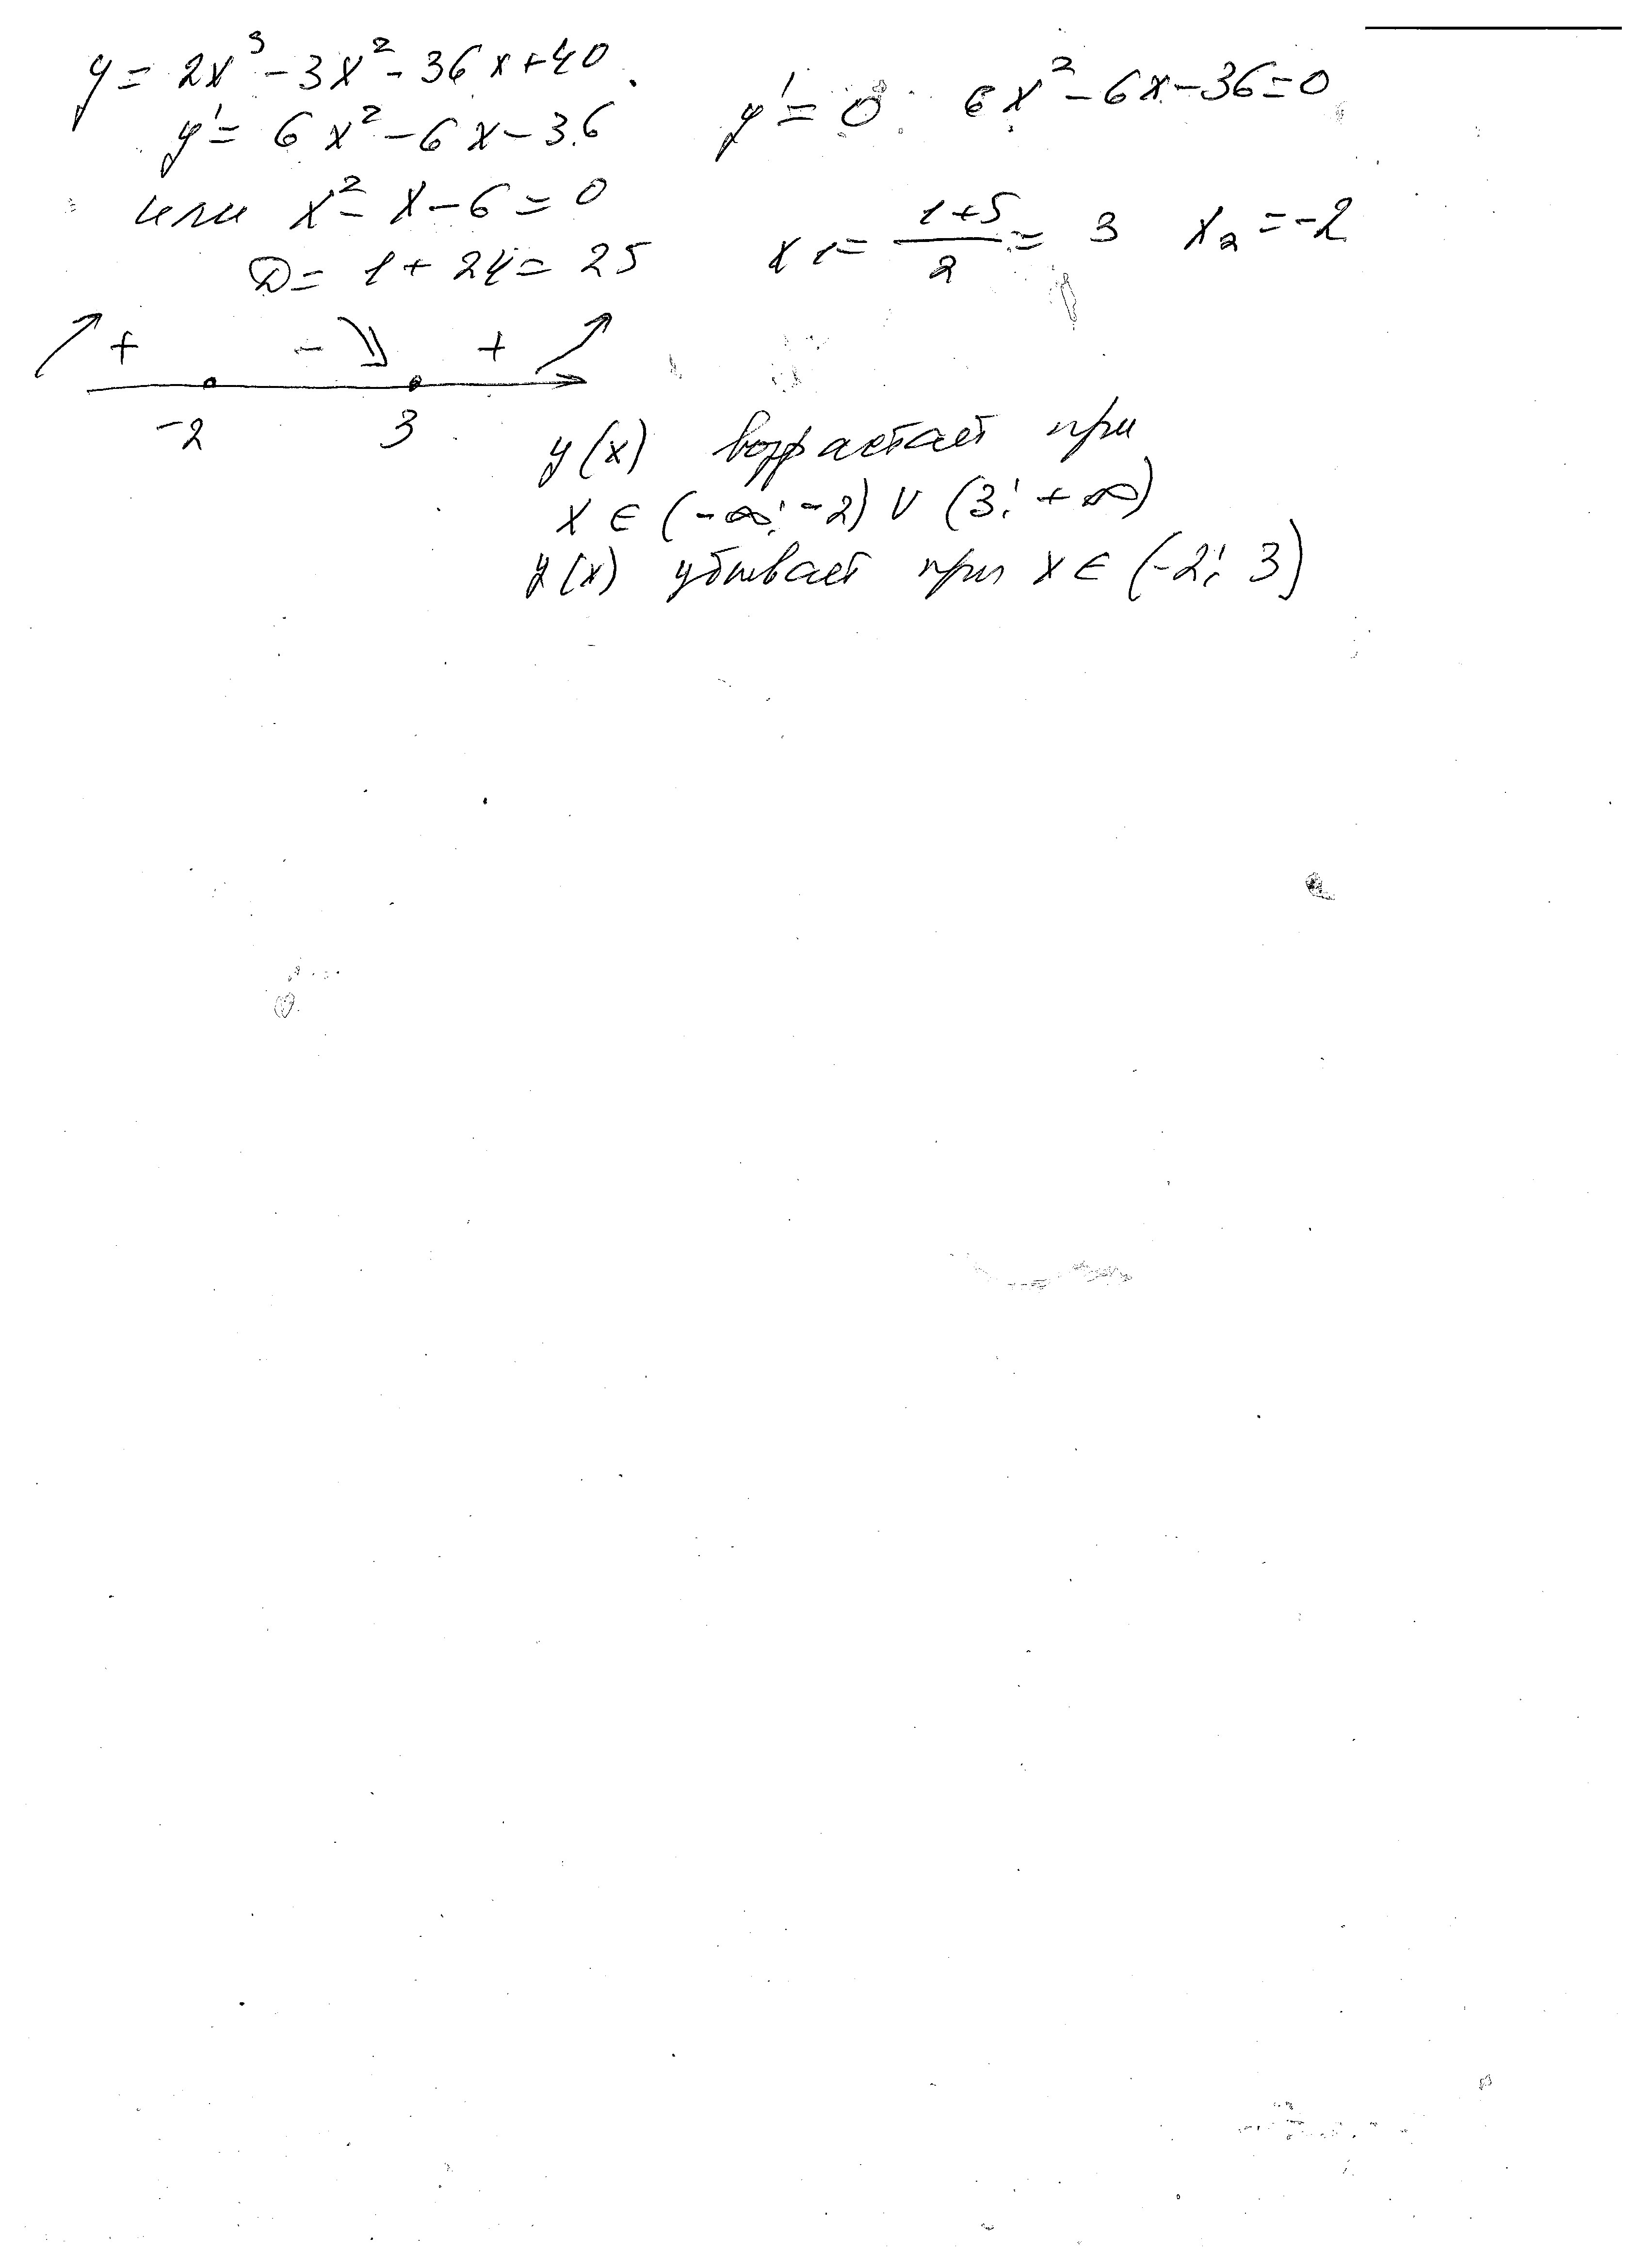 y = 2x³ - 3x² - 36x + 40.
y' = 6x² - 6x - 36 y' = 0 6x² - 6x - 36 = 0
или x² - x - 6 = 0
D = 1 + 24 = 25 x₁ = (1+5)/2 = 3 x₂ = -2
+ - +
-2 3
y(x) возрастает при
x ∈ (-∞; -2) ∪ (3; +∞)
y(x) убывает при x ∈ (-2; 3)